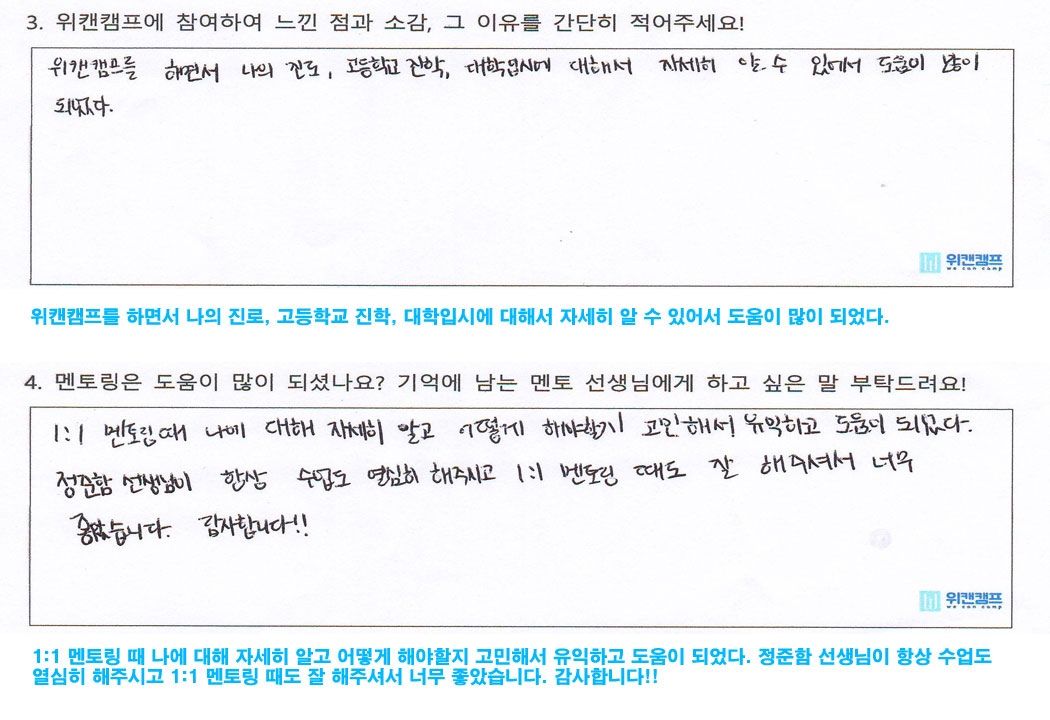 3. 위캔캠프에 참여하여 느낀 점과 소감, 그 이유를 간단히 적어주세요!
위캔캠프를 하면서 나의 진로, 고등학교 진학, 대학입시에 대해서 자세히 알 수 있어서 도움이 많이
되었다.
위캔캠프
we can camp
위캔캠프를 하면서 나의 진로, 고등학교 진학, 대학입시에 대해서 자세히 알 수 있어서 도움이 많이 되었다.
4. 멘토링은 도움이 많이 되셨나요? 기억에 남는 멘토 선생님에게 하고 싶은 말 부탁드려요!
1:1 멘토링때 나에 대해 자세히 알고 어떻게 해야할지 고민해서 유익하고 도움이 되었다.
정준함 선생님이 항상 수업도 열심히 해주시고 1:1 멘토링 때도 잘 해주셔서 너무
좋았습니다. 감사합니다!!
위캔캠프
we can camp
1:1 멘토링 때 나에 대해 자세히 알고 어떻게 해야할지 고민해서 유익하고 도움이 되었다. 정준함 선생님이 항상 수업도
열심히 해주시고 1:1 멘토링 때도 잘 해주셔서 너무 좋았습니다. 감사합니다!!